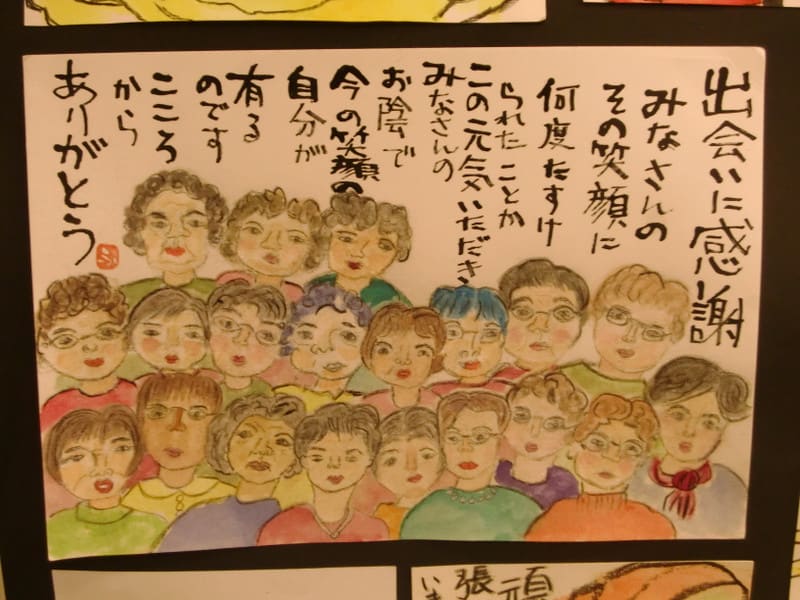 出会いに感謝
みなさんの
その笑顔に
何度たすけ
られたことか
この元気いただき
みなさんの
お陰で
今の笑顔の
自分が
有る
のです
こころ
から
ありがとう
頑
張